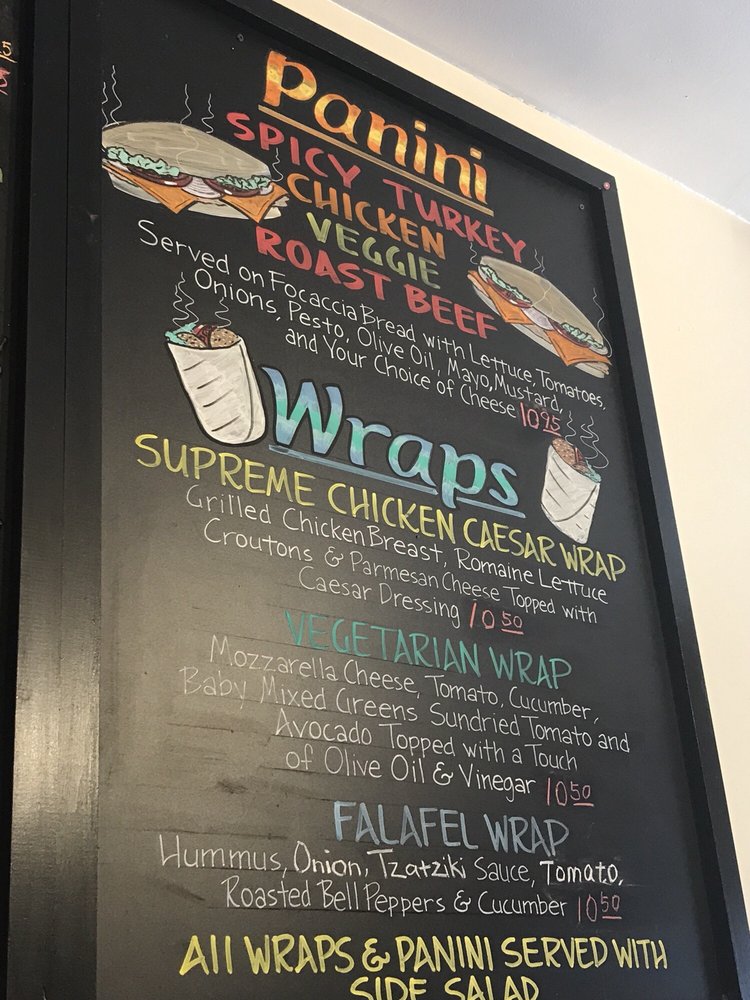 Panini
SPICY TURKEY
CHICKEN
VEGGIE
ROAST BEEF
Served on Focaccia Bread with Lettuce, Tomatoes,
Onions, Pesto, Olive Oil, Mayo, Mustard,
and Your Choice of Cheese 10.95
Wraps
SUPREME CHICKEN CAESAR WRAP
Grilled Chicken Breast, Romaine Lettuce
Croutons & Parmesan Cheese Topped with
Caesar Dressing 10 50
VEGETARIAN WRAP
Mozzarella Cheese, Tomato, Cucumber,
Baby Mixed Greens Sundried Tomato and
Avocado Topped with a Touch
of Olive Oil & Vinegar 10 50
FALAFEL WRAP
Hummus, Onion, Tzatziki Sauce, Tomato,
Roasted Bell Peppers & Cucumber 10 50
All WRAPS & PANINI SERVED WITH
SIDE SALAD